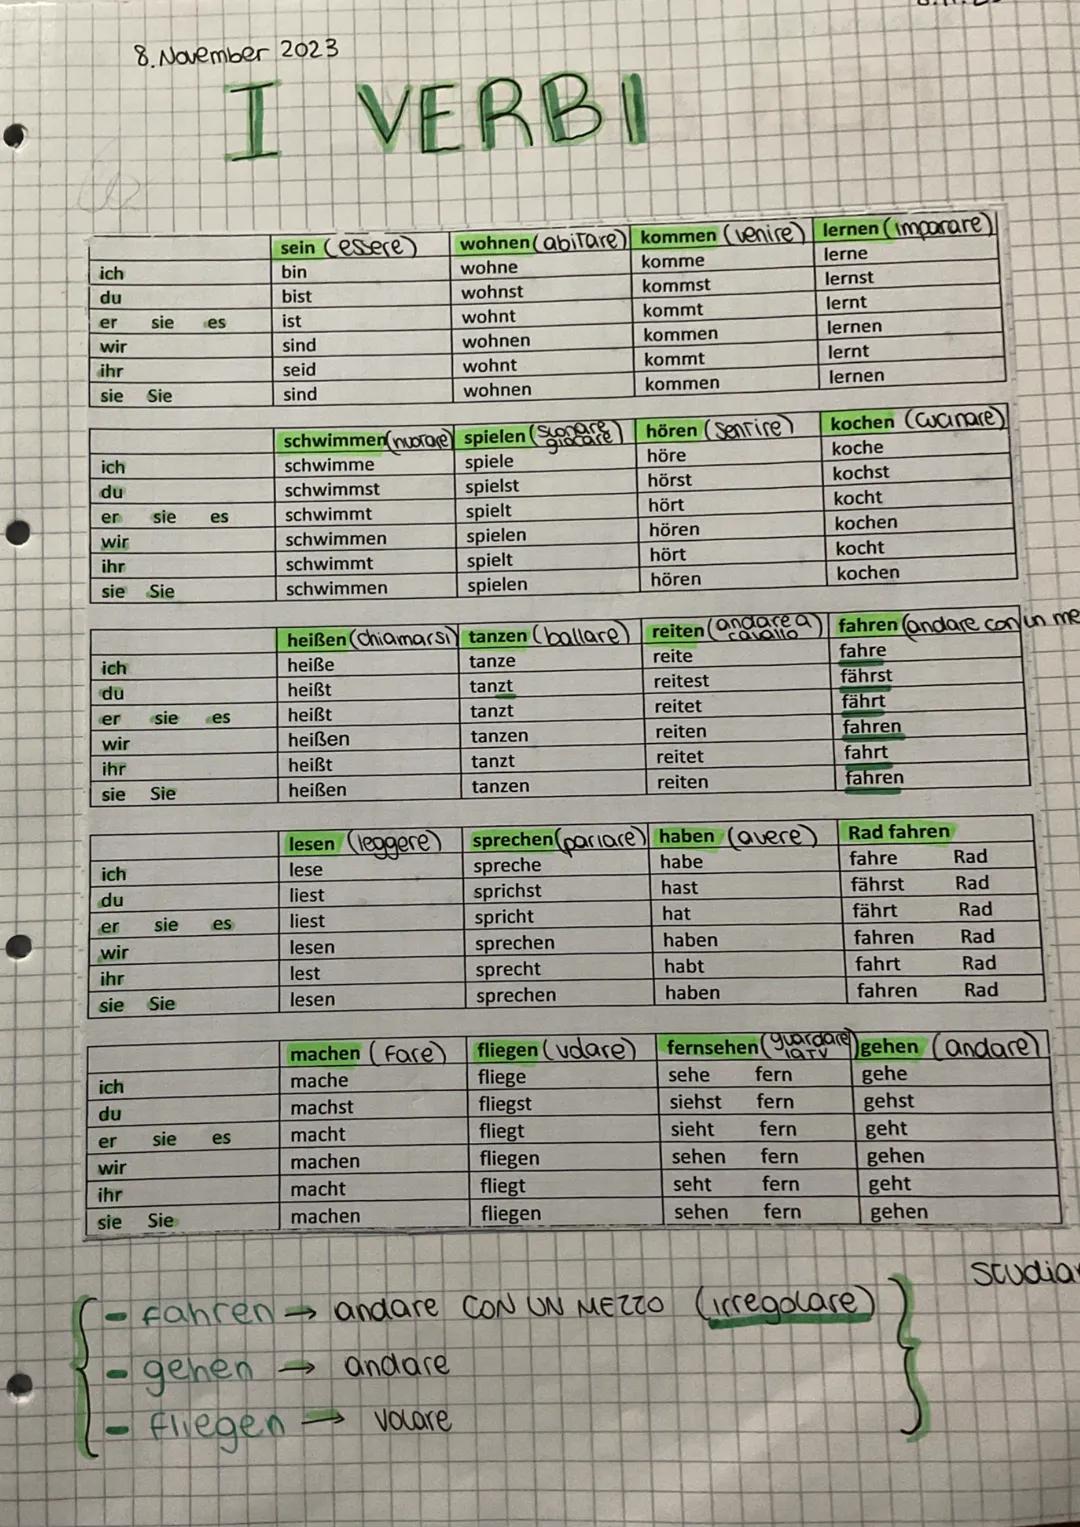 8. November 2023
I VERBI
sein (essere) wohnen (abitare) kommen (venire) lernen (imparare)
ich bin wohne komme lerne
du bist wohnst kommst lernst
er sie es ist wohnt kommt lernt
wir sind wohnen kommen lernen
ihr seid wohnt kommt lernt
sie Sie sind wohnen kommen lernen
schwimmen (nuotare) spielen (suonare giocare) hören (sentire) kochen (cucinare)
ich schwimme spiele höre koche
du schwimmst spielst hörst kochst
er sie es schwimmt spielt hört kocht
wir schwimmen spielen hören kochen
ihr schwimmt spielt hört kocht
sie Sie schwimmen spielen hören kochen
heißen (chiamarsi) tanzen (ballare) reiten (andare a cavallo) fahren (andare con un me
ich heiße tanze reite fahre
du heißt tanzt reitest fährst
er sie es heißt tanzt reitet fährt
wir heißen tanzen reiten fahren
ihr heißt tanzt reitet fahrt
sie Sie heißen tanzen reiten fahren
lesen (leggere) sprechen (parlare) haben (avere) Rad fahren
ich lese spreche habe fahre Rad
du liest sprichst hast fährst Rad
er sie es liest spricht hat fährt Rad
wir lesen sprechen haben fahren Rad
ihr lest sprecht habt fahrt Rad
sie Sie lesen sprechen haben fahren Rad
machen (fare) fliegen (volare) fernsehen (guardare la TV) gehen (andare)
ich mache fliege sehe fern gehe
du machst fliegst siehst fern gehst
er sie es macht fliegt sieht fern geht
wir machen fliegen sehen fern gehen
ihr macht fliegt seht fern geht
sie Sie machen fliegen sehen fern gehen
studiar
- fahren → andare CON UN MEZZO (irregolare)
- gehen → andare
- fliegen → volare